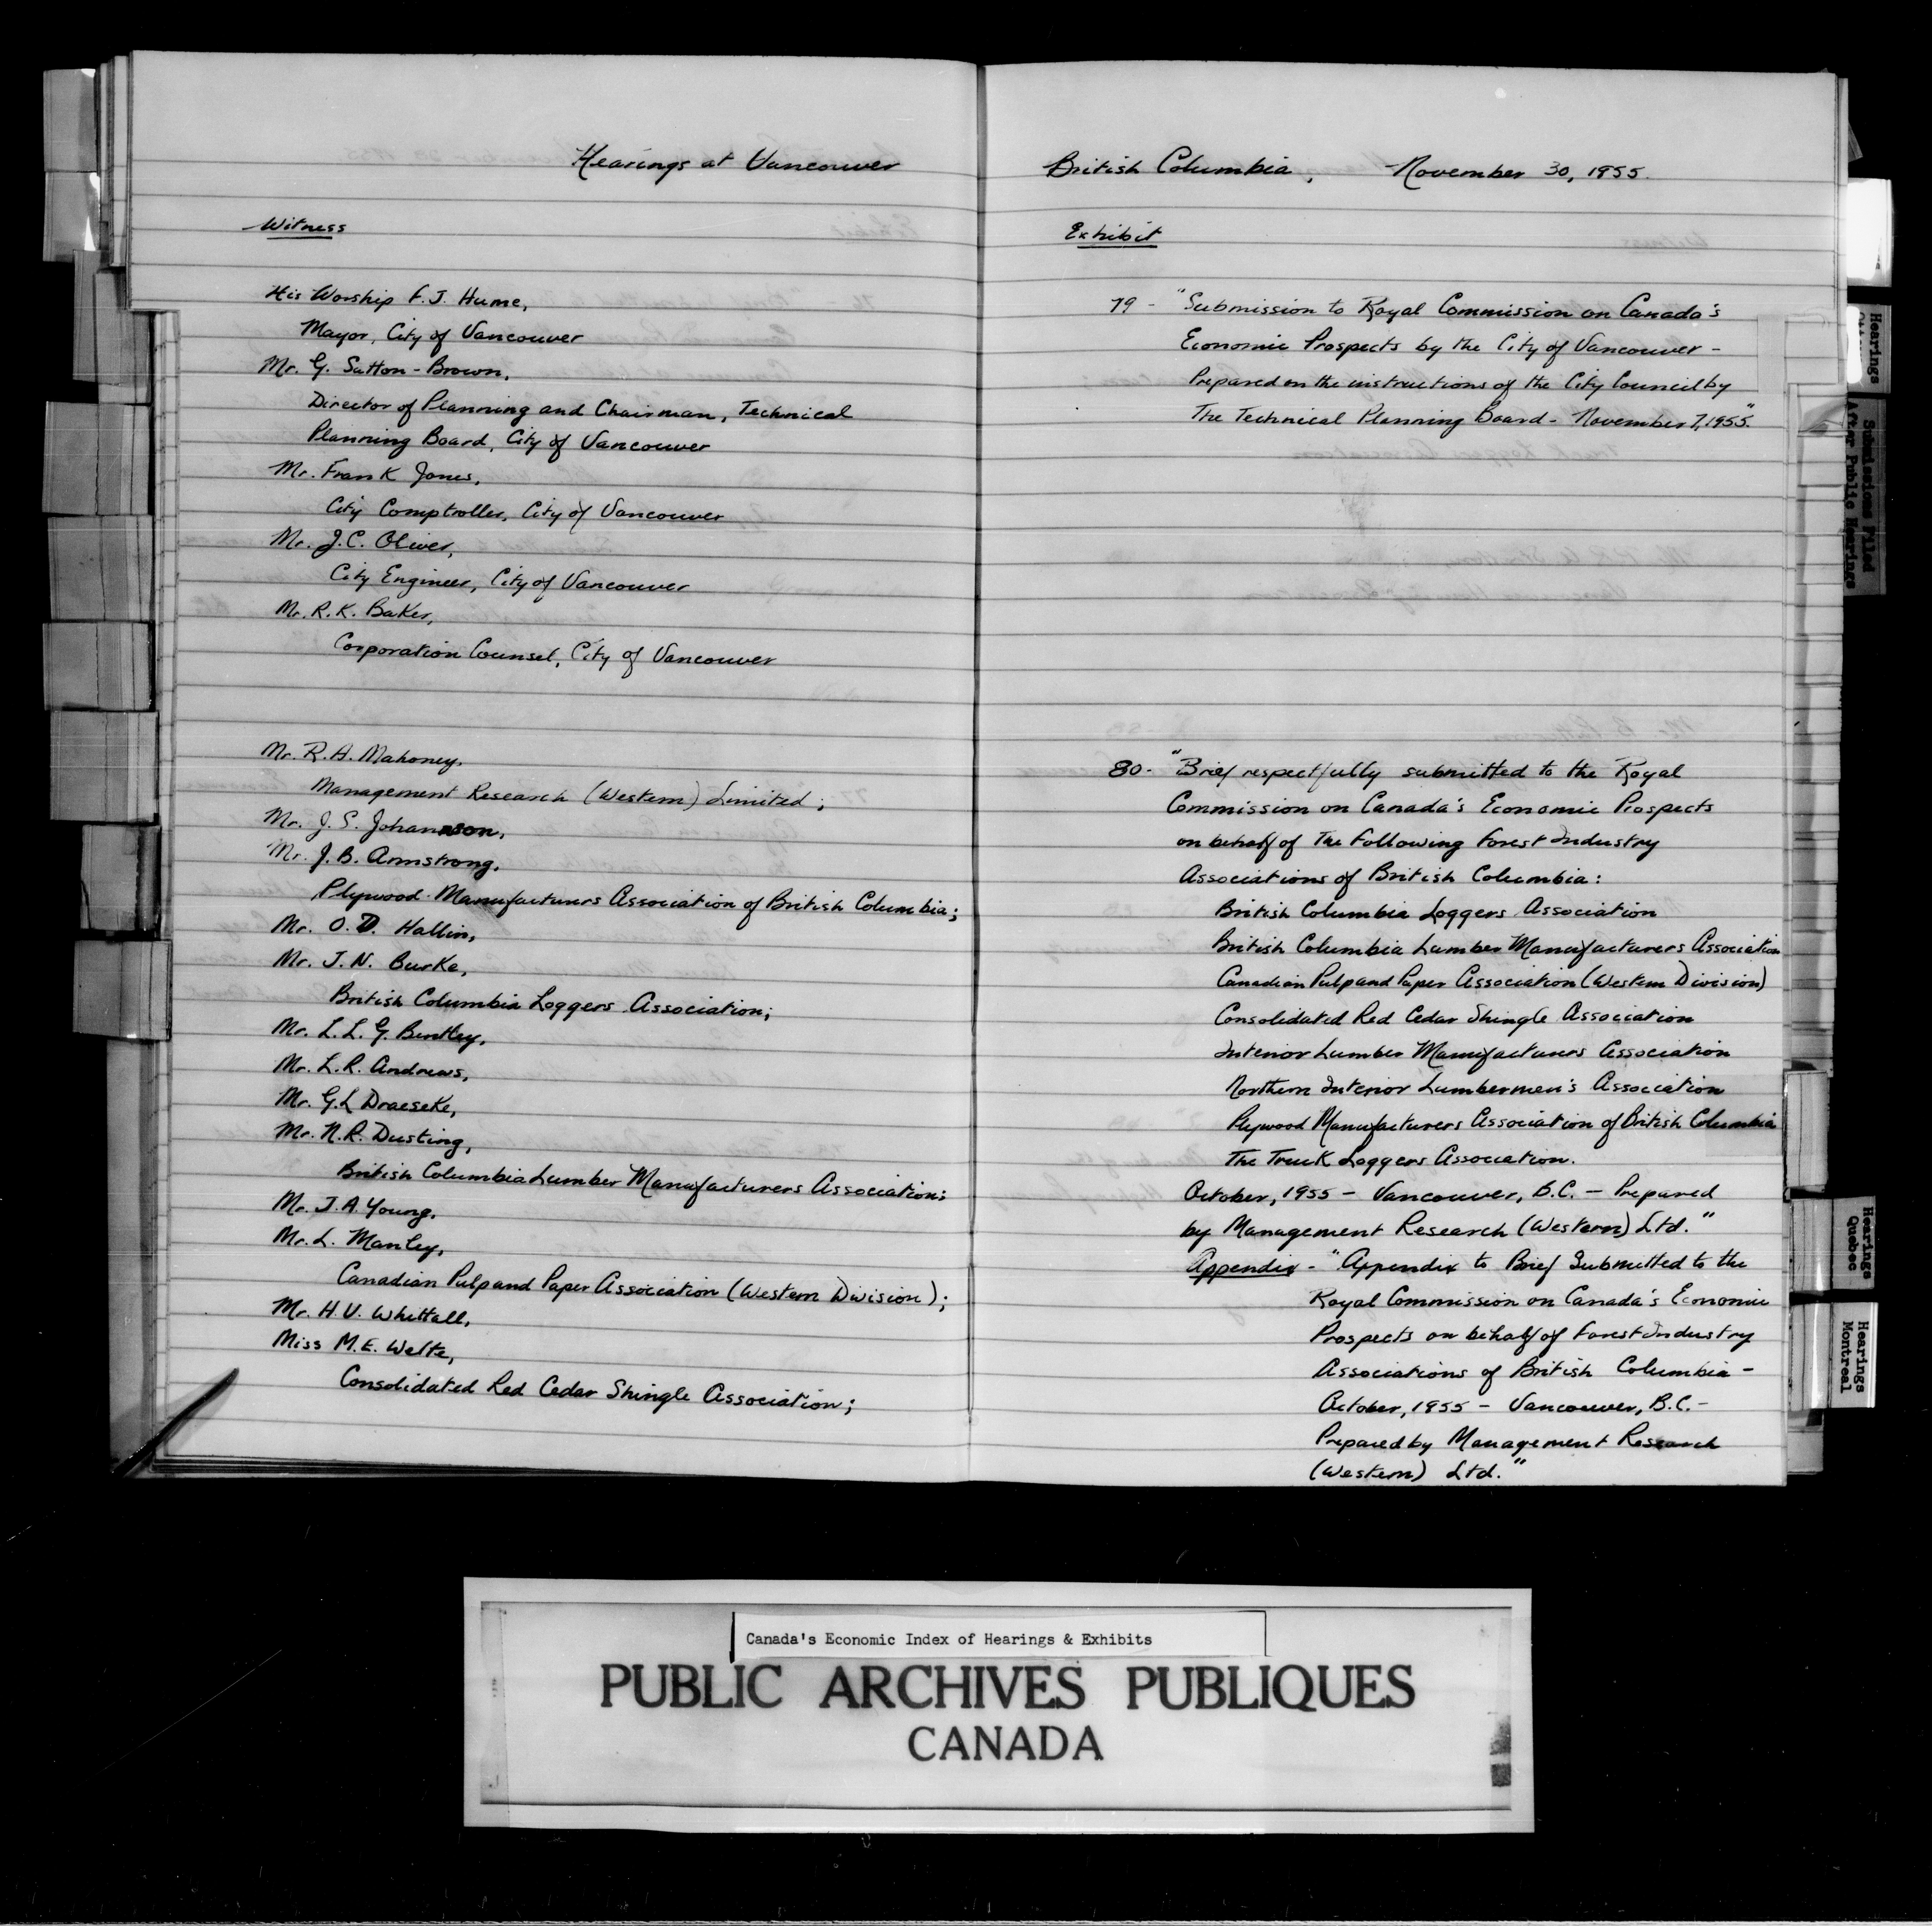 Hearings at Vancouver
Witness
His Worship F. J. Hume,
Mayor, City of Vancouver
Mr. G. Sutton-Brown,
Director of Planning and Chairman, Technical
Planning Board, City of Vancouver
Mr. Frank Jones,
City Comptroller, City of Vancouver
Mr. J.C. Oliver,
City Engineer, City of Vancouver
Mr. R.K. Baker,
Corporation Counsel, City of Vancouver
Mr. R.A. Mahoney,
Management Research (Western) Limited;
Mr. J. S. Johannson,
Mr. J. B. Armstrong,
Plywood Manufacturers Association of British Columbia;
Mr. O. D. Hallin,
Mr. J. N. Burke,
British Columbia Loggers Association;
Mr. L. L. G. Bentley,
Mr. L.R. Andrews,
Mr. G.L Draeseke,
Mr. N.R. Dusting,
British Columbia Lumber Manufacturers Association;
Mr. J.A. Young,
Mr. L. Manley,
Canadian Pulp and Paper Association (Western Division);
Mr. H V. Whittall,
Miss M.E. Welte,
Consolidated Red Cedar Shingle Association;
British Columbia, November 30, 1955.
Exhibit
79 - "Submission to Royal Commission on Canada's
Economic Prospects by the City of Vancouver -
Prepared on the instructions of the City Council by
The Technical Planning Board - November 7, 1955."
80 - "Brief respectfully submitted to the Royal
Commission on Canada's Economic Prospects
on behalf of The Following Forest Industry
Associations of British Columbia:
British Columbia Loggers Association
British Columbia Lumber Manufacturers Association
Canadian Pulp and Paper Association (Western Division)
Consolidated Red Cedar Shingle Association
Interior Lumber Manufacturers Association
Northern Interior Lumbermen's Association
Plywood Manufacturers Association of British Columbia
The Truck Loggers Association.
October, 1955 - Vancouver, B.C. - Prepared
by Management Research (Western) Ltd."
Appendix - "Appendix to Brief Submitted to the
Royal Commission on Canada's Economic
Prospects on behalf of Forest Industry
Associations of British Columbia -
October, 1955 - Vancouver, B.C. -
Prepared by Management Research
(Western) Ltd."
Hearings
Submissions Filed
After Public Hearings
Hearings
Quebec
Hearings
Montreal
Canada's Economic Index of Hearings & Exhibits
PUBLIC ARCHIVES PUBLIQUES
CANADA